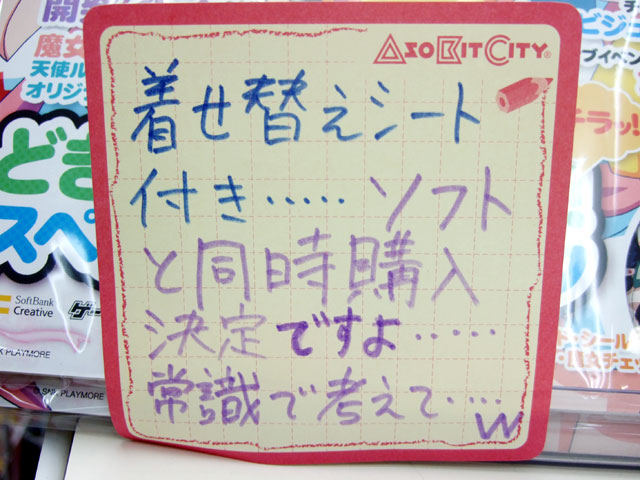 ASOBITCITY
着せ替えシート
付き‥‥‥ソフト
と同時購入
決定ですよ‥‥‥
常識で考えて‥‥
w
開発
魔女
天使ル
オリジ
どき
スペ
SoftBank
Creative
K PLAYMORE
© SNK PLAYMORE
ビジ
ブイベン
チラッ!!
ド・シール